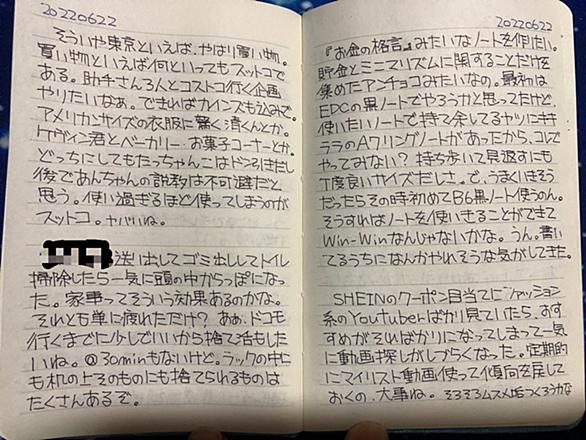 20220622
そういや東京といえば、やはり買い物。
買い物といえば何といってもスットコで
ある。助手さん3人とコストコ行く企画
やりたいなあ。できればカインズも込みで。
アメリカンサイズの衣服に驚く清くんとか。
ケヴィン君とベーカリー・お菓子コーナーとか。
どっちにしてもたっちゃんこはドンびきだし
後であんちゃんの説教は不可避だと
思う。使い過ぎるほど使ってしまうのが
スットコ。ヤバいね。
送り出してゴミ出ししてトイレ
掃除したら一気に頭の中からっぽになっ
た。。家事ってそういう効果あるのかな。
それとも単に疲れただけ?あぁ、ドコモ
行くまでに少しでいいから捨て活もした
いね。@30minもないけど。ラックの中に
も机の上そのものにも捨てられるものは
たくさんあるぞ。
20220622
『お金の格言』みたいなノートを作りたい。
貯金とミニマリズムに関することだけを
集めたアンチョコみたいなの。最初は
EDCの黒ノートでやろうかと思ってたけど、
使いたいノートで持て余してるヤツにキキ
ララのAワリングノートがあったから、コレで
やってみない?持ち歩いて見返すにも
丁度良いサイズだしさ。で、うまくいきそう
だったらその時初めてB6黒ノート使うのん。
そうすればノートを使いきることができて
Win-Winなんじゃないかな。うん。書い
てるうちになんかやれそうな気がしてきた。
SHEINのクーポン目当てにファッション
系のYoutuberばかり見ていたら、おす
すめがそればかりになってしまって一気
に動画探しがしづらくなった。定期的
にマイリスト動画使って傾向を戻して
おくの、大事ね。そろそろムスメ垢つくろうかな